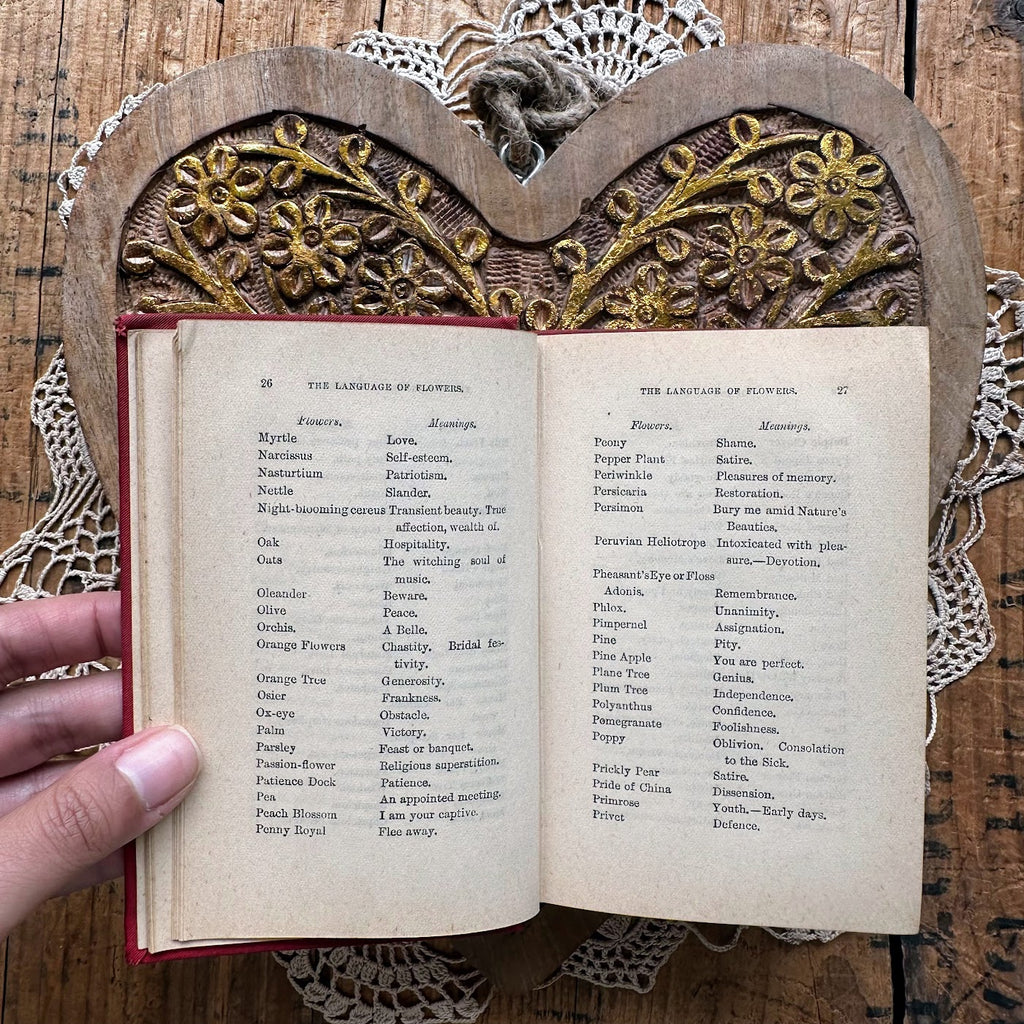 26 THE LANGUAGE OF FLOWERS.
Flowers. Meanings.
Myrtle Love.
Narcissus Self-esteem.
Nasturtium Patriotism.
Nettle Slander.
Night-blooming cereus Transient beauty. True
affection, wealth of.
Oak Hospitality.
Oats The witching soul of
music.
Oleander Beware.
Olive Peace.
Orchis. A Belle.
Orange Flowers Chastity. Bridal fes-
tivity.
Orange Tree Generosity.
Osier Frankness.
Ox-eye Obstacle.
Palm Victory.
Parsley Feast or banquet.
Passion-flower Religious superstition.
Patience Dock Patience.
Pea An appointed meeting.
Peach Blossom I am your captive.
Penny Royal Flee away.
THE LANGUAGE OF FLOWERS. 27
Flowers. Meanings.
Peony Shame.
Pepper Plant Satire.
Periwinkle Pleasures of memory.
Persicaria Restoration.
Persimon Bury me amid Nature's
Beauties.
Peruvian Heliotrope Intoxicated with plea-
sure.—Devotion.
Pheasant's Eye or Floss
Adonis. Remembrance.
Phlox. Unanimity.
Pimpernel Assignation.
Pine Pity.
Pine Apple You are perfect.
Plane Tree Genius.
Plum Tree Independence.
Polyanthus Confidence.
Pomegranate Foolishness.
Poppy Oblivion. Consolation
to the Sick.
Prickly Pear Satire.
Pride of China Dissension.
Primrose Youth.—Early days.
Privet Defence.